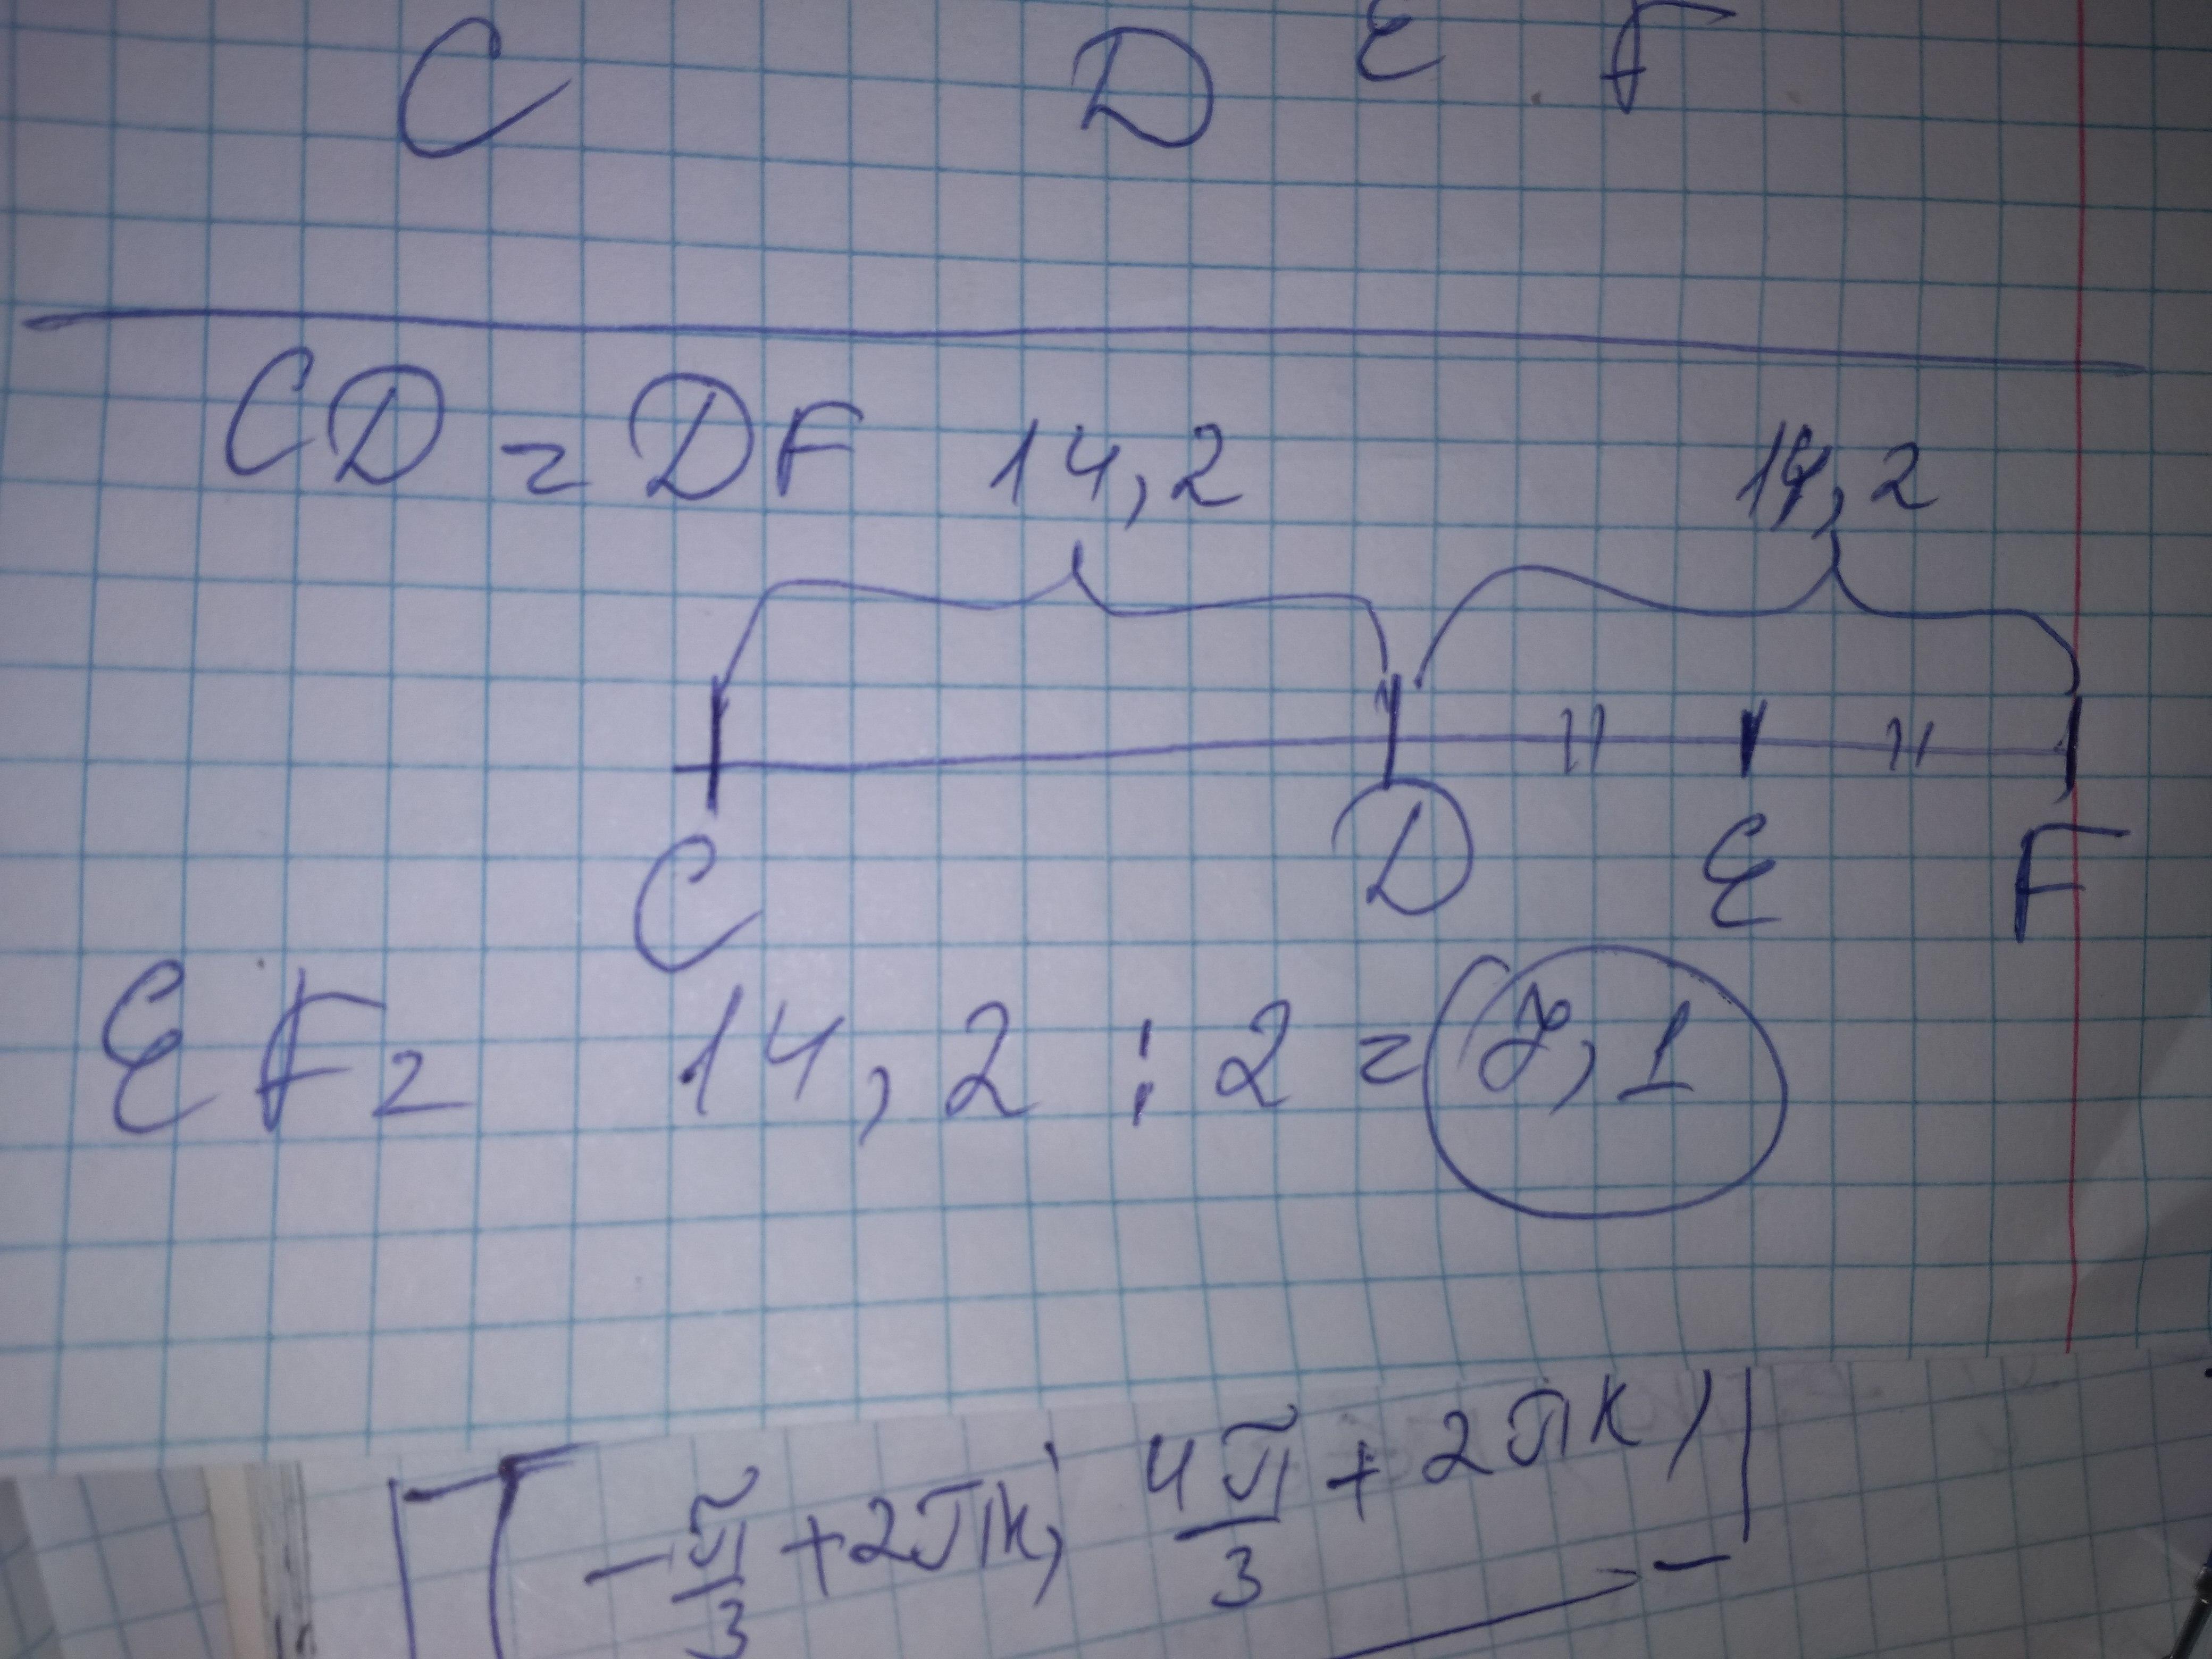 C D E F
CD = DF 14,2 14,2
C D E F
EF = 14,2 : 2 = 7,1
[-π/3 + 2πk; 4π/3 + 2πk)